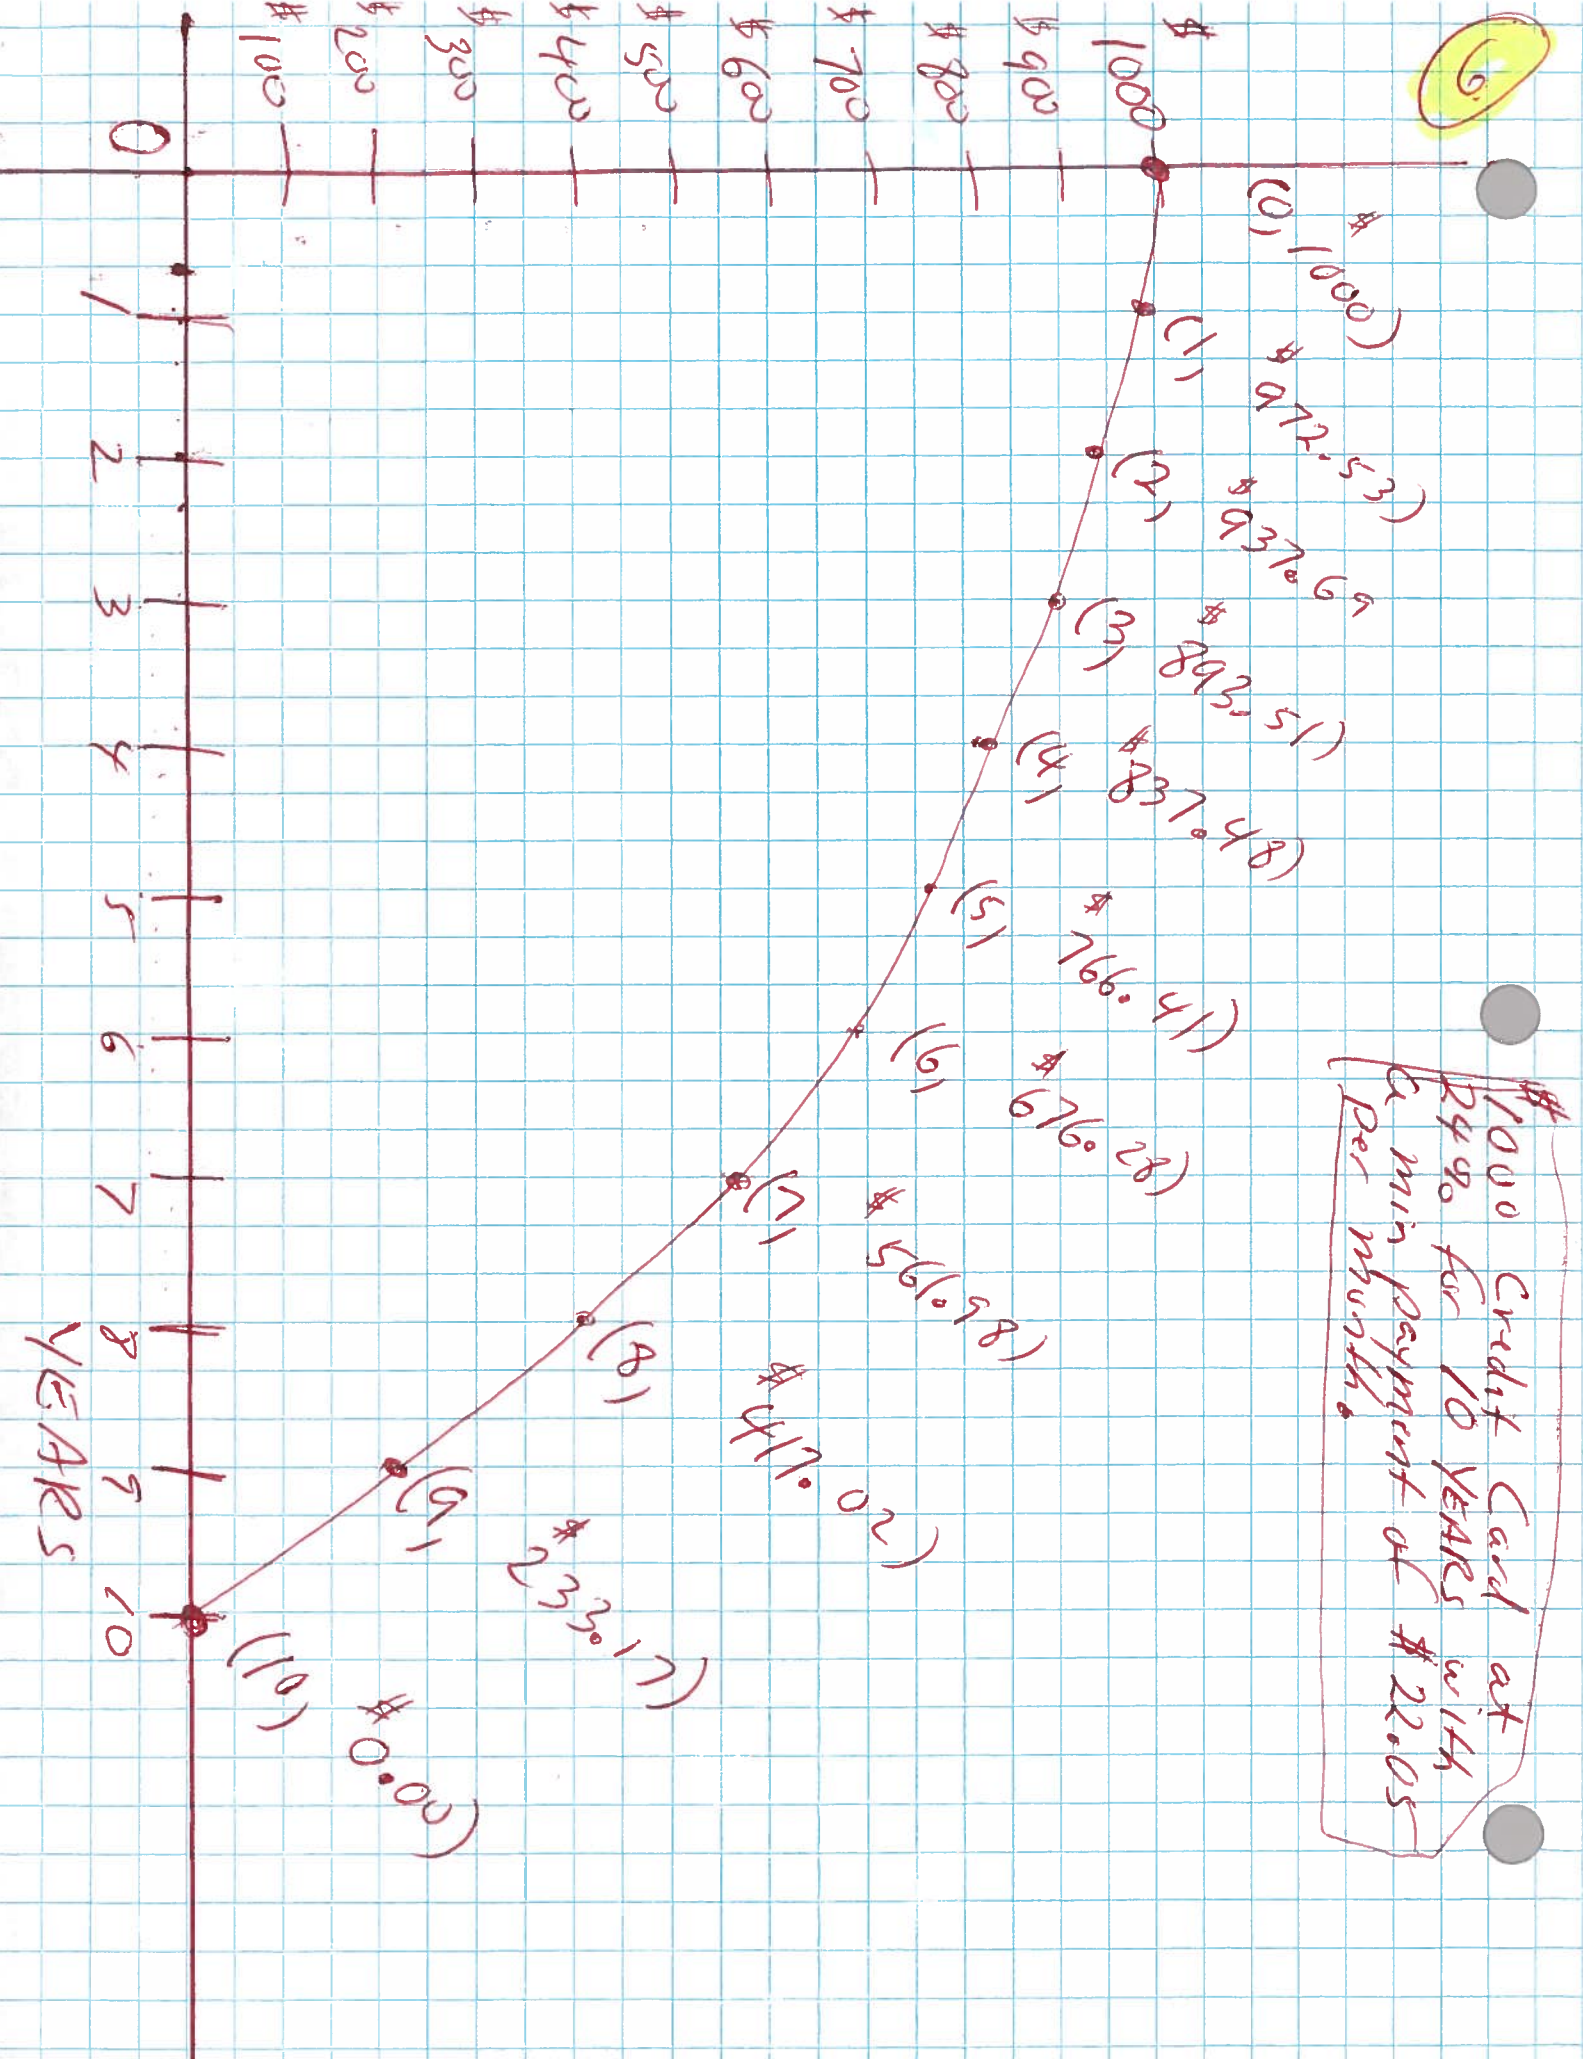 6
$1000 Credit Card at
24% for 10 YEARS with
a min payment of $22.05
per month.
(0, $1000)
(1, $972.53)
(2, $937.69
(3, $893.51)
(4, $837.48)
(5, $766.41)
(6, $676.28)
(7, $561.98)
(8, $417.02)
(9, $233.17)
(10, $0.00)
$1000
$900
$800
$700
$600
$500
$400
$300
$200
$100
0 1 2 3 4 5 6 7 8 9 10
YEARS